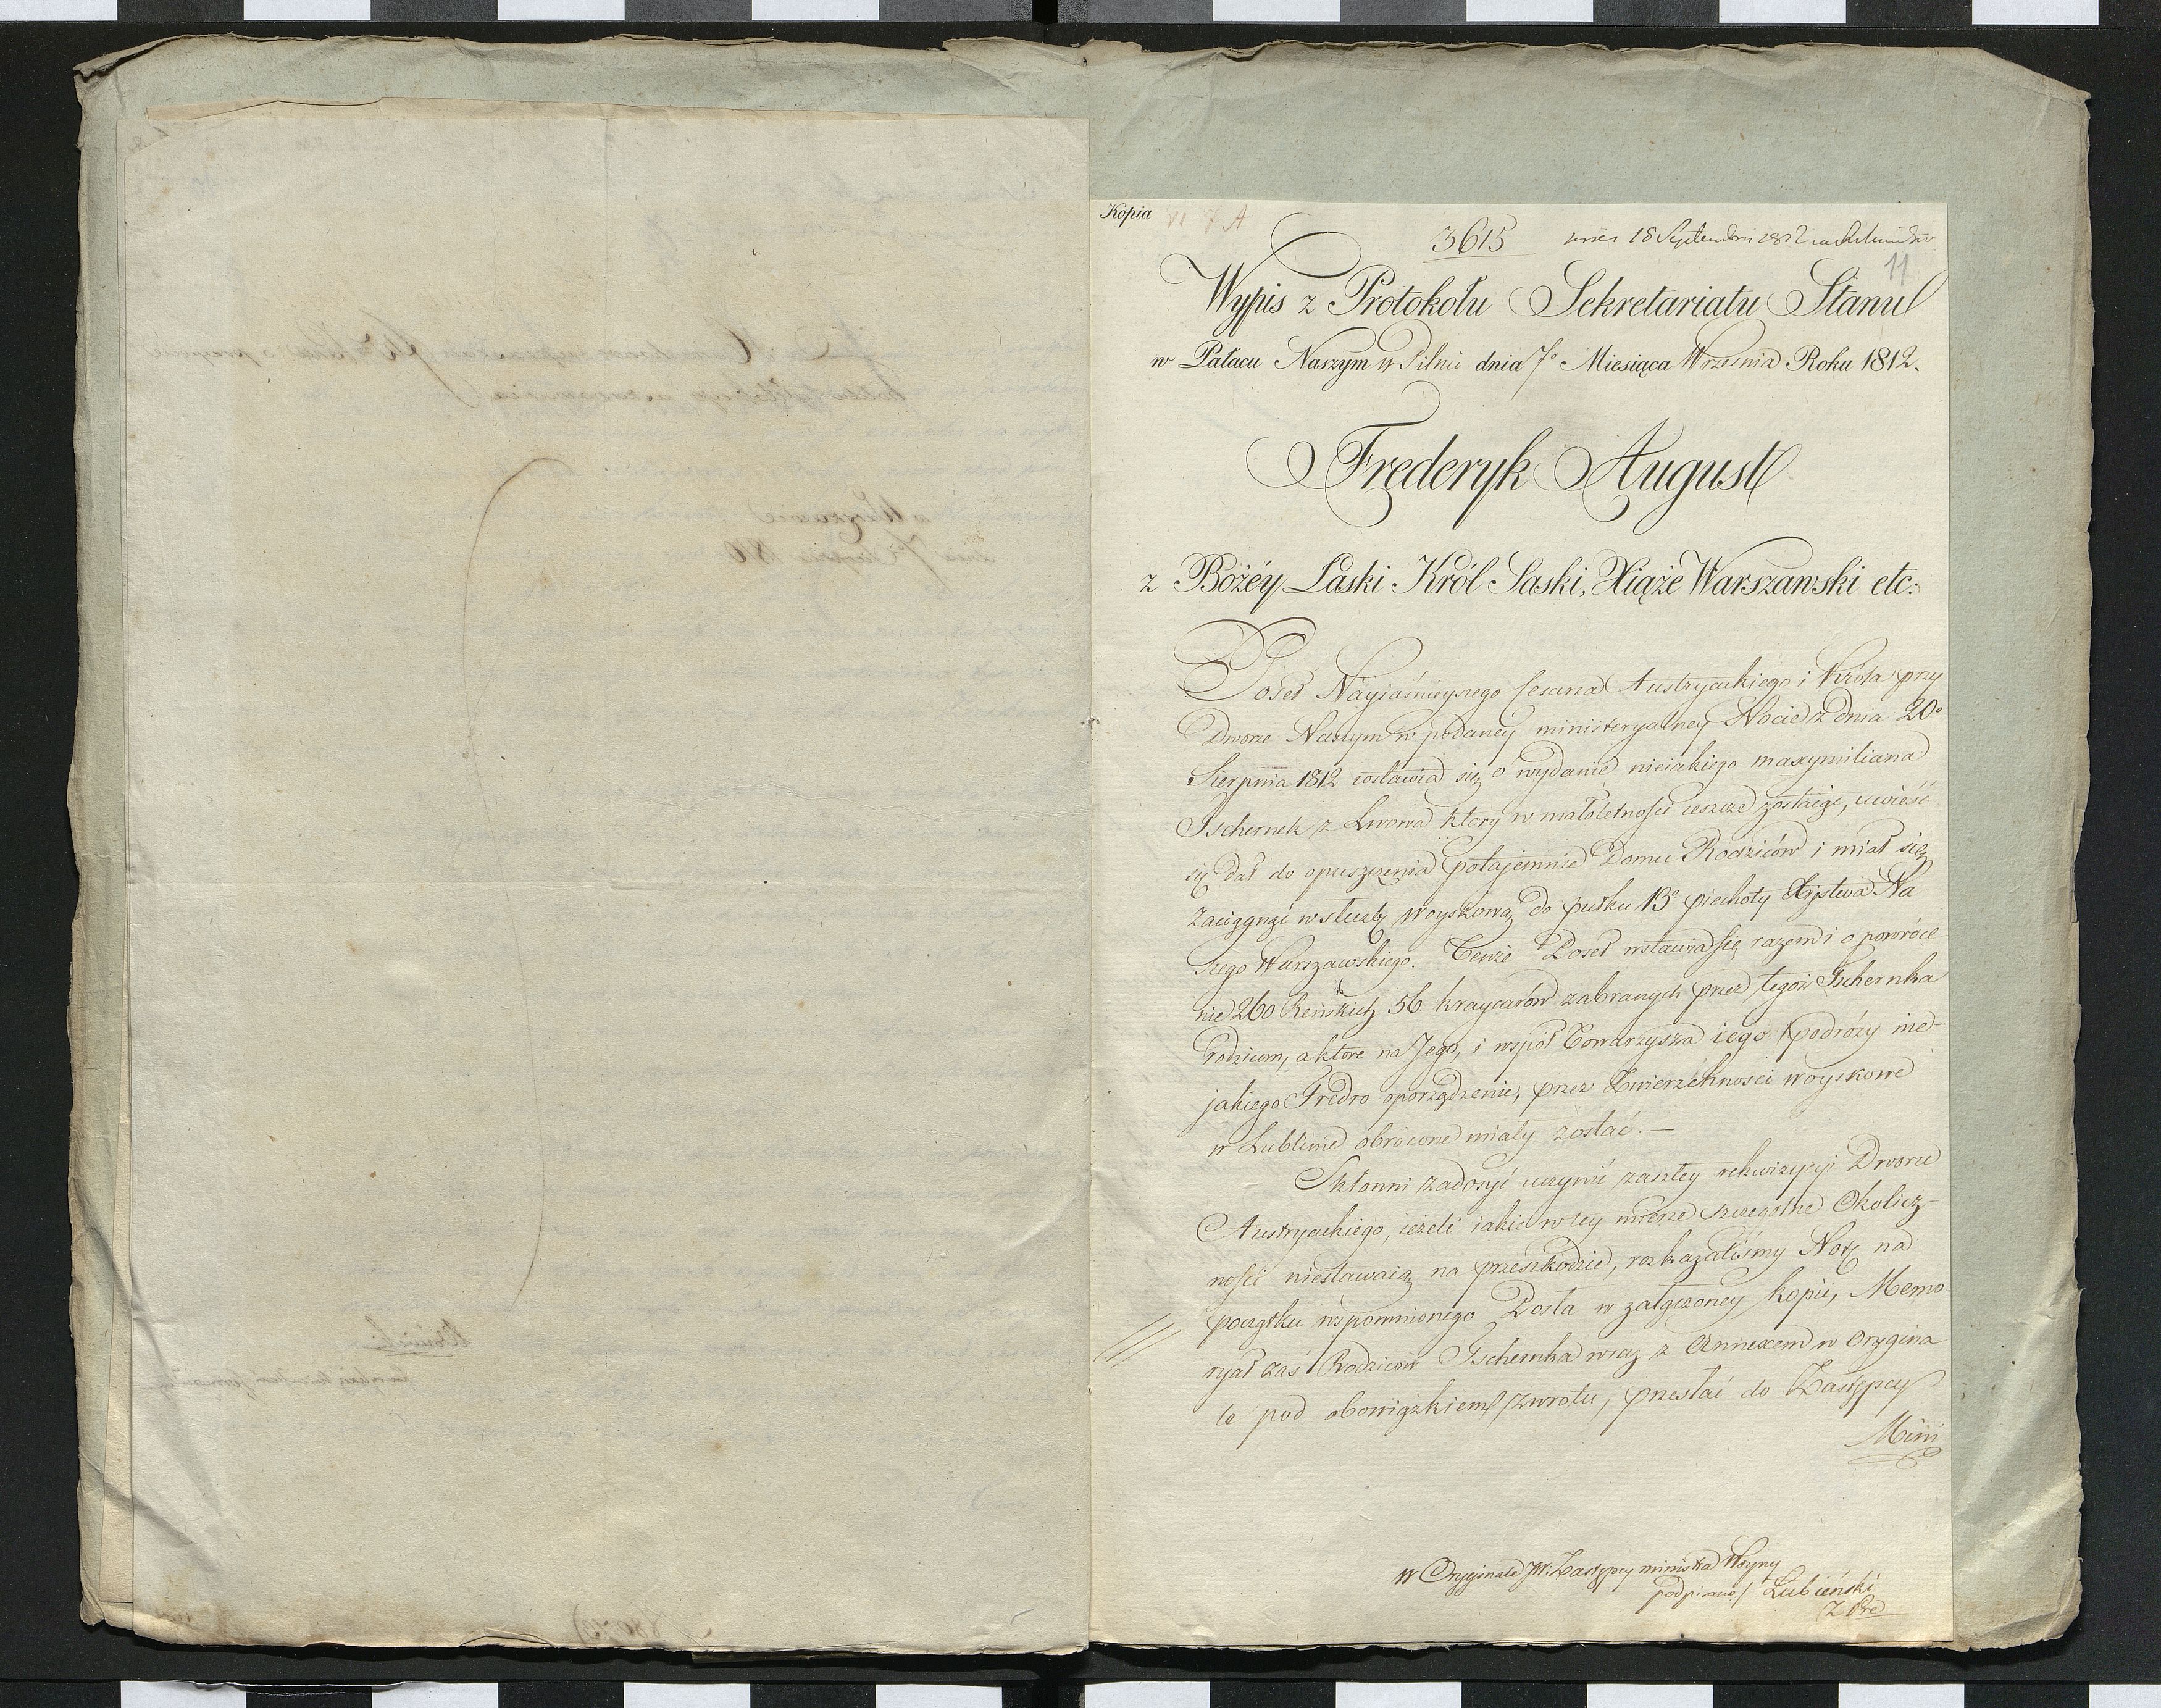 Kopia
3615
18 Septembris 1812
11
Wypis z Protokołu Sekretariatu Stanu
w Pałacu Naszym w Pilnic dnia 7º Miesiąca Września Roku 1812.
Frederyk August
z Bożéy Łaski Król Saski, Xiąże Warszawski etc:
Poseł Nayiaśnieyszego Cesarza Austryackiego i Króla przy
Dworze Naszym w podaney ministeryalney Nocie z dnia 20º
Sierpnia 1812 wstawia się o wydanie nieiakiego maxymiliana
Tschernek z Lwowa który w małoletności ieszcze zostaiąc, uwieść
się dał do opuszczenia potajemnie Domu Rodziców i miał się
zaciągnąć w służbę woyskową do pułku 13º piechoty Xięstwa Na
szego Warszawskiego. Tenże Poseł wstawia się razem i o powróce-
nie 260 Reńskich 56 kraycarów zabranych przez tegoż Tschernka
Rodzicom, a które na Jego, i współ Towarzysza iego podróży nie-
jakiego Fredro oporządzenie, przez Zwierzchności woyskowe
w Lublinie obrócone miały zostać. —
Skłonni zadosyć uczynić zaszłey rekwizycyi Dworu
Austryackiego, ieżeli iakie w tey mierze szczególne Okolicz-
ności niestawaią na przeszkodzie, rozkazaliśmy Notę na
początku wspomnionego Posła w załączoney kopii, Memo-
ryał zaś Rodziców Tschernka wraz z Annexem w Orygina
le pod obowiązkiem zwrotu, przesłać do Zastępcy
Mini
w Oryginale JW. Zastępcy ministra Woyny
podpisano / Łubieński